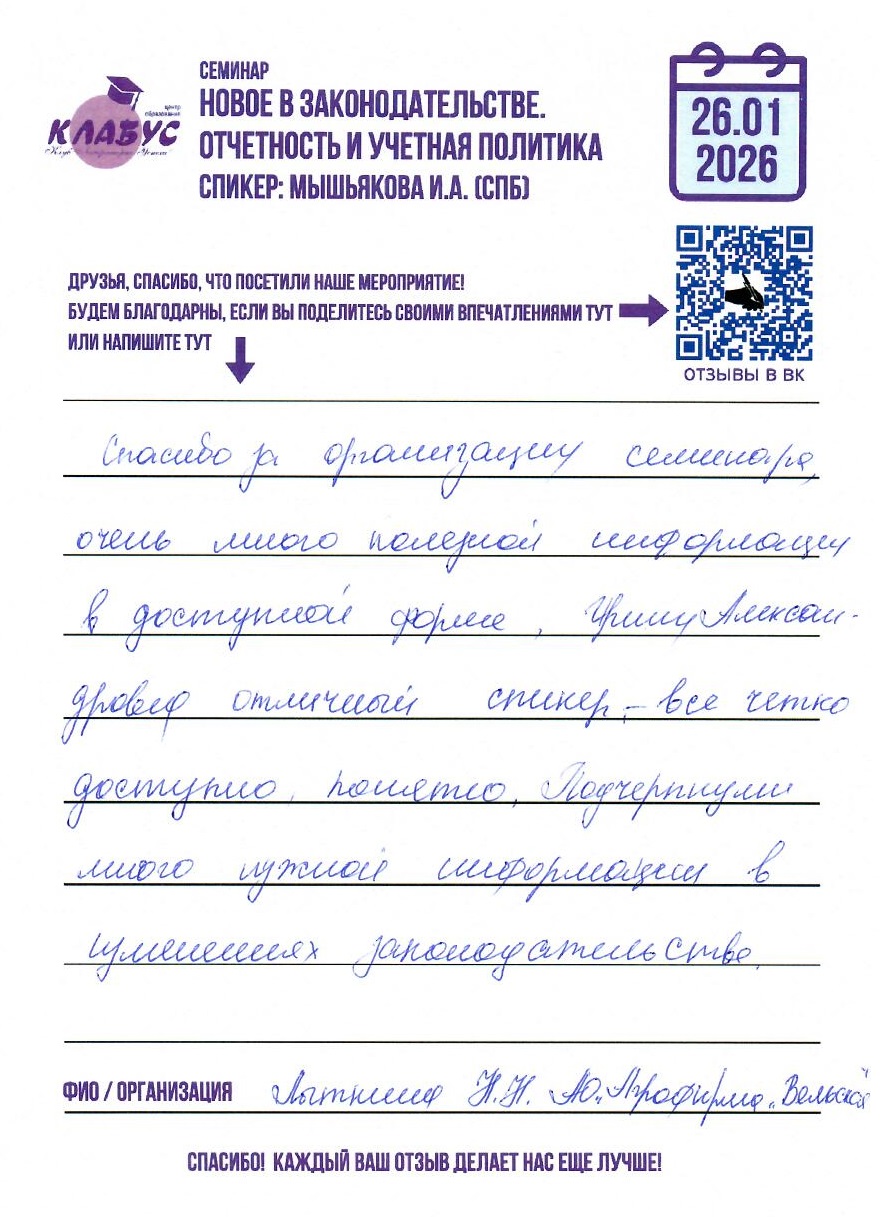 СЕМИНАР
НОВОЕ В ЗАКОНОДАТЕЛЬСТВЕ.
ОТЧЕТНОСТЬ И УЧЕТНАЯ ПОЛИТИКА
СПИКЕР: МЫШЬЯКОВА И.А. (СПБ)
центр
образования
КЛАБУС
26.01
2026
ДРУЗЬЯ, СПАСИБО, ЧТО ПОСЕТИЛИ НАШЕ МЕРОПРИЯТИЕ!
БУДЕМ БЛАГОДАРНЫ, ЕСЛИ ВЫ ПОДЕЛИТЕСЬ СВОИМИ ВПЕЧАТЛЕНИЯМИ ТУТ
ИЛИ НАПИШИТЕ ТУТ
ОТЗЫВЫ В ВК
Спасибо за организацию семинара,
очень много полезной информации
в доступной форме, Ирина Алексан-
дровна отличный спикер, – все четко
доступно, понятно, Подчерпнули
много нужной информации в
изменениях законодательства.
ФИО / ОРГАНИЗАЦИЯ Лыткина Н.Н. АО „Агрофирма „Вельская"
СПАСИБО! КАЖДЫЙ ВАШ ОТЗЫВ ДЕЛАЕТ НАС ЕЩЕ ЛУЧШЕ!